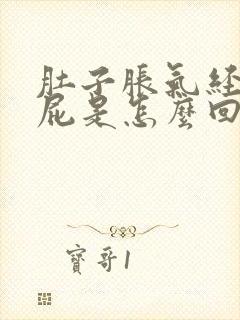 肚子脹氣經
屁是怎麼回
寶哥1